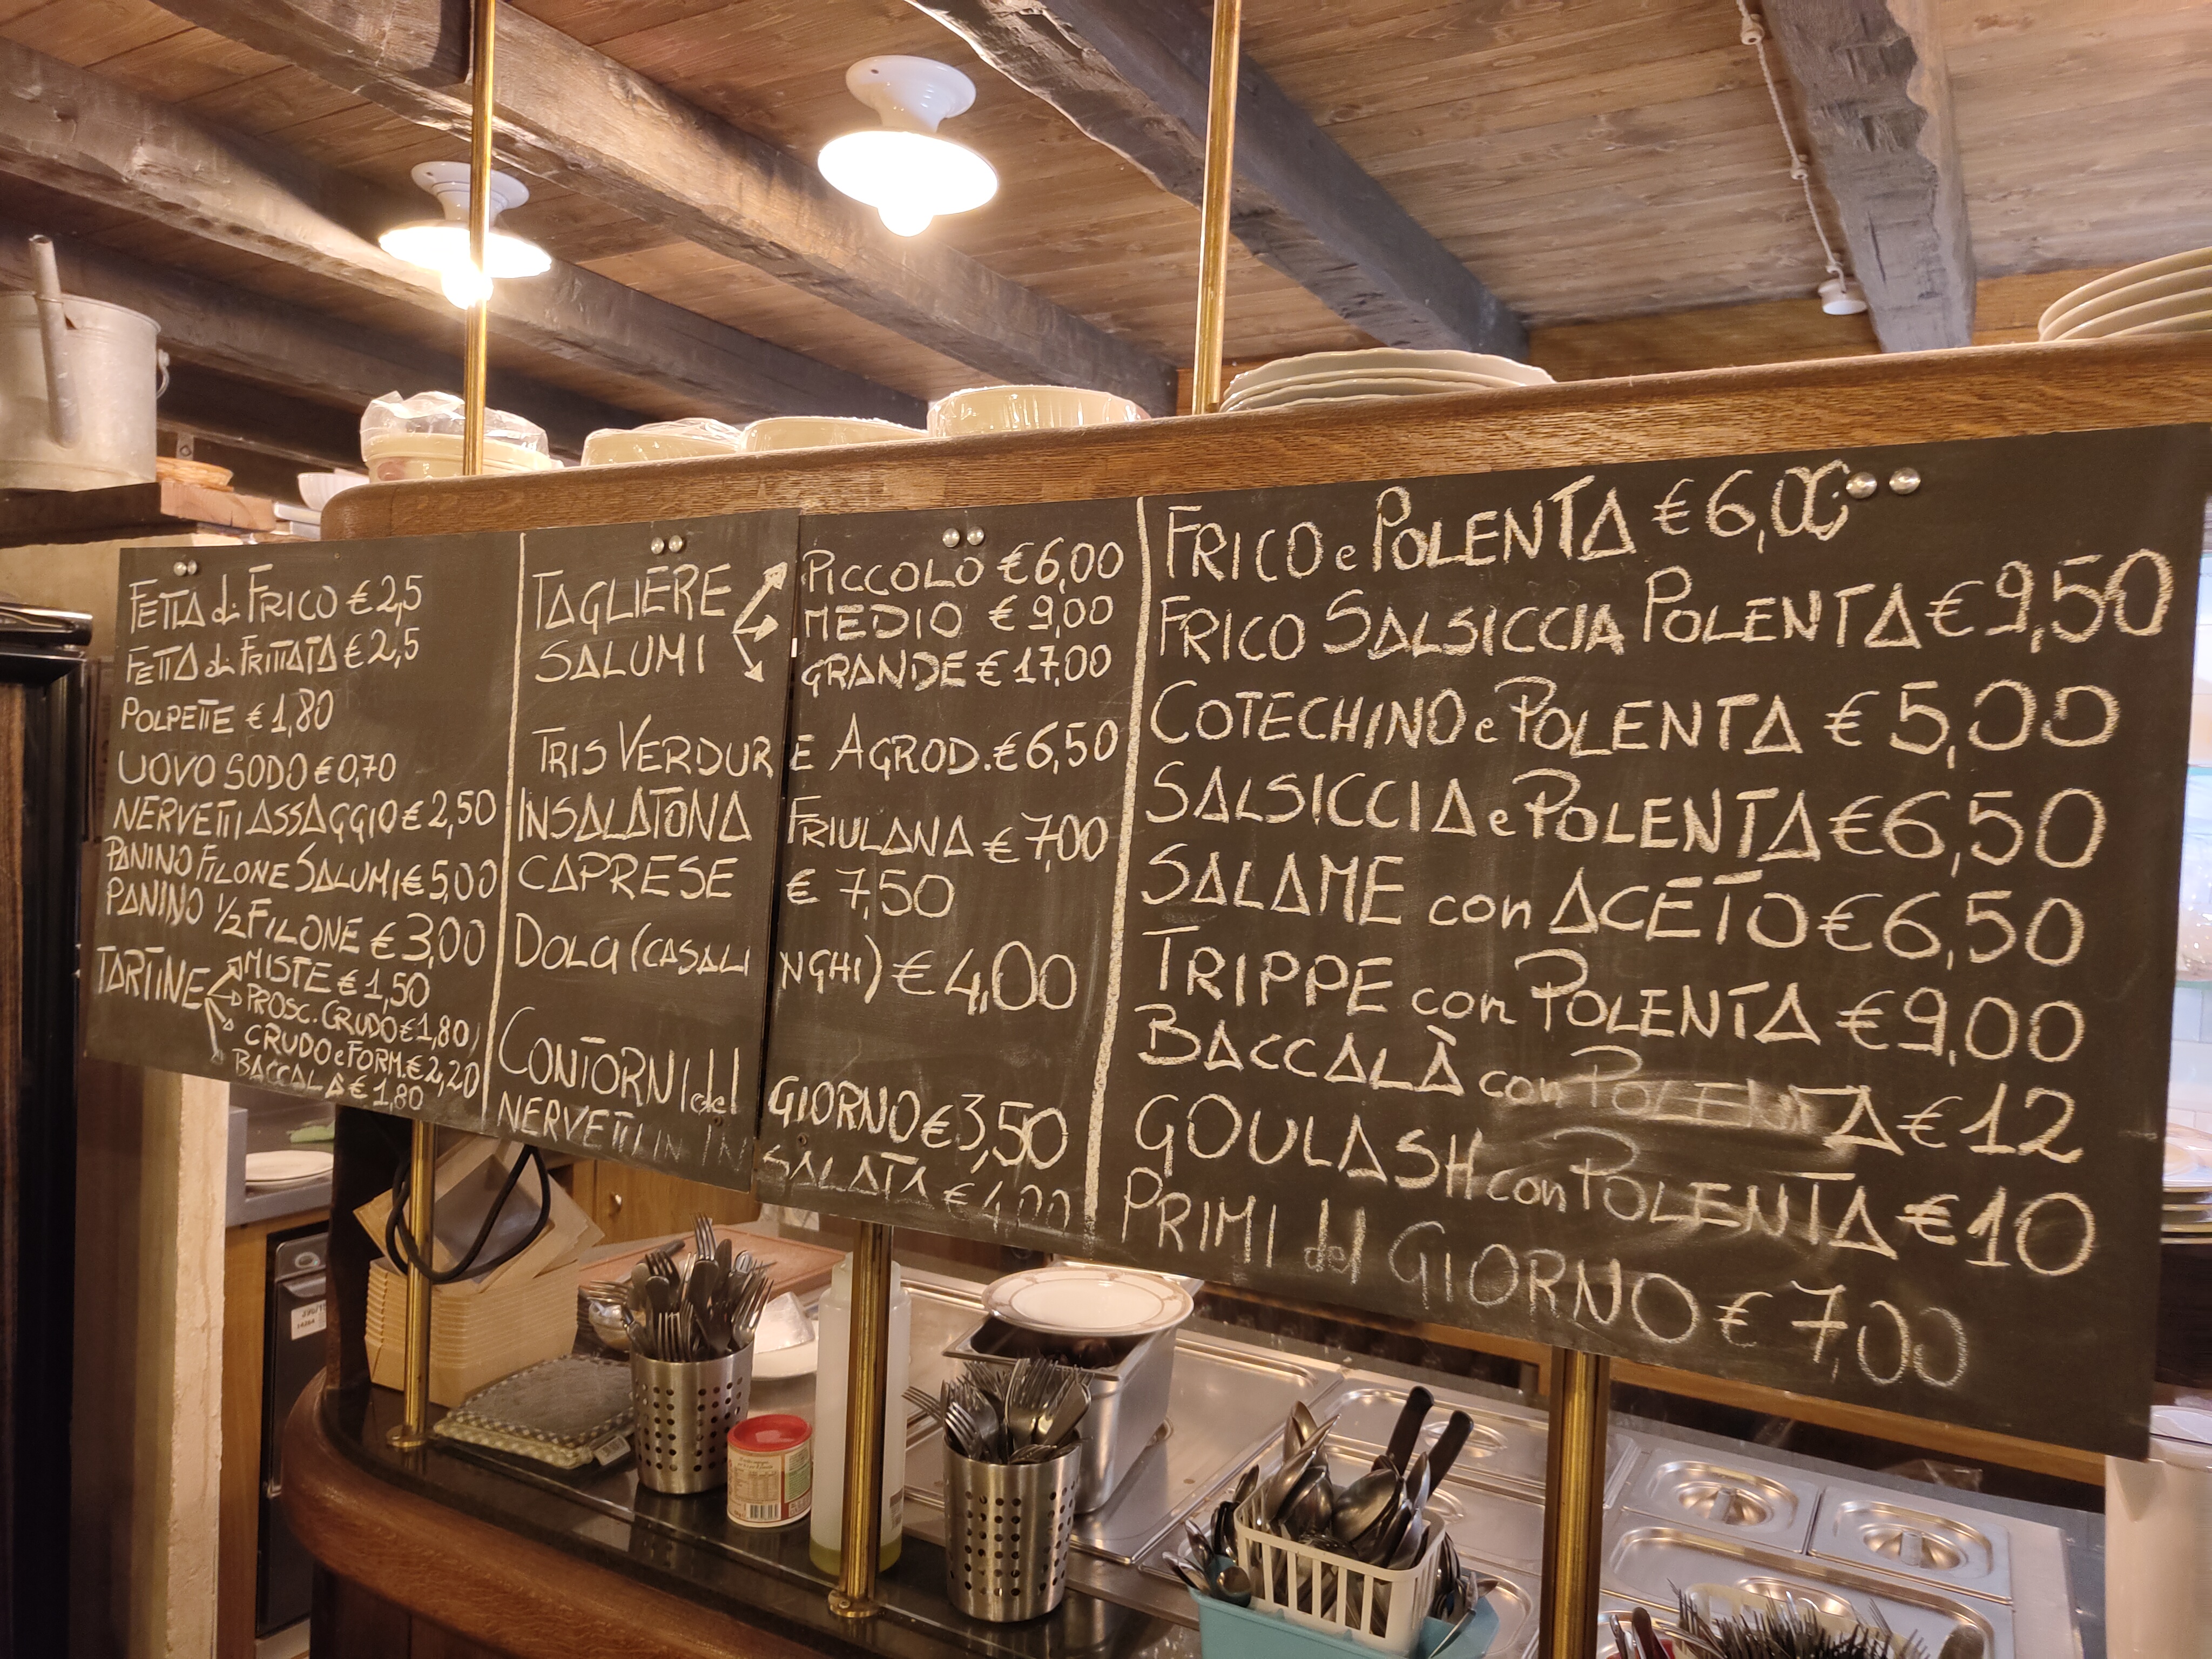 FETTA di FRICO € 2,5
FETTA di FRITTATA € 2,5
POLPETTE € 1,80
UOVO SODO € 0,70
NERVETTI ASSAGGIO € 2,50
PANINO FILONE SALUMI € 5,00
PANINO 1/2 FILONE € 3,00
TARTINE
MISTE € 1,50
PROSC. CRUDO € 1,80
CRUDO e FORM. € 2,20
BACCALÀ € 1,80
TAGLIERE
SALUMI
PICCOLO € 6,00
MEDIO € 9,00
GRANDE € 17,00
TRIS VERDURE AGROD. € 6,50
INSALATONA FRIULANA € 7,00
CAPRESE € 7,50
DOLCI (CASALINGHI) € 4,00
CONTORNI del GIORNO € 3,50
NERVETTI IN INSALATA € 4,00
FRICO e POLENTA € 6,00
FRICO SALSICCIA POLENTA € 9,50
COTECHINO e POLENTA € 5,00
SALSICCIA e POLENTA € 6,50
SALAME con ACETO € 6,50
TRIPPE con POLENTA € 9,00
BACCALÀ con POLENTA € 12
GOULASH con POLENTA € 10
PRIMI del GIORNO € 7,00